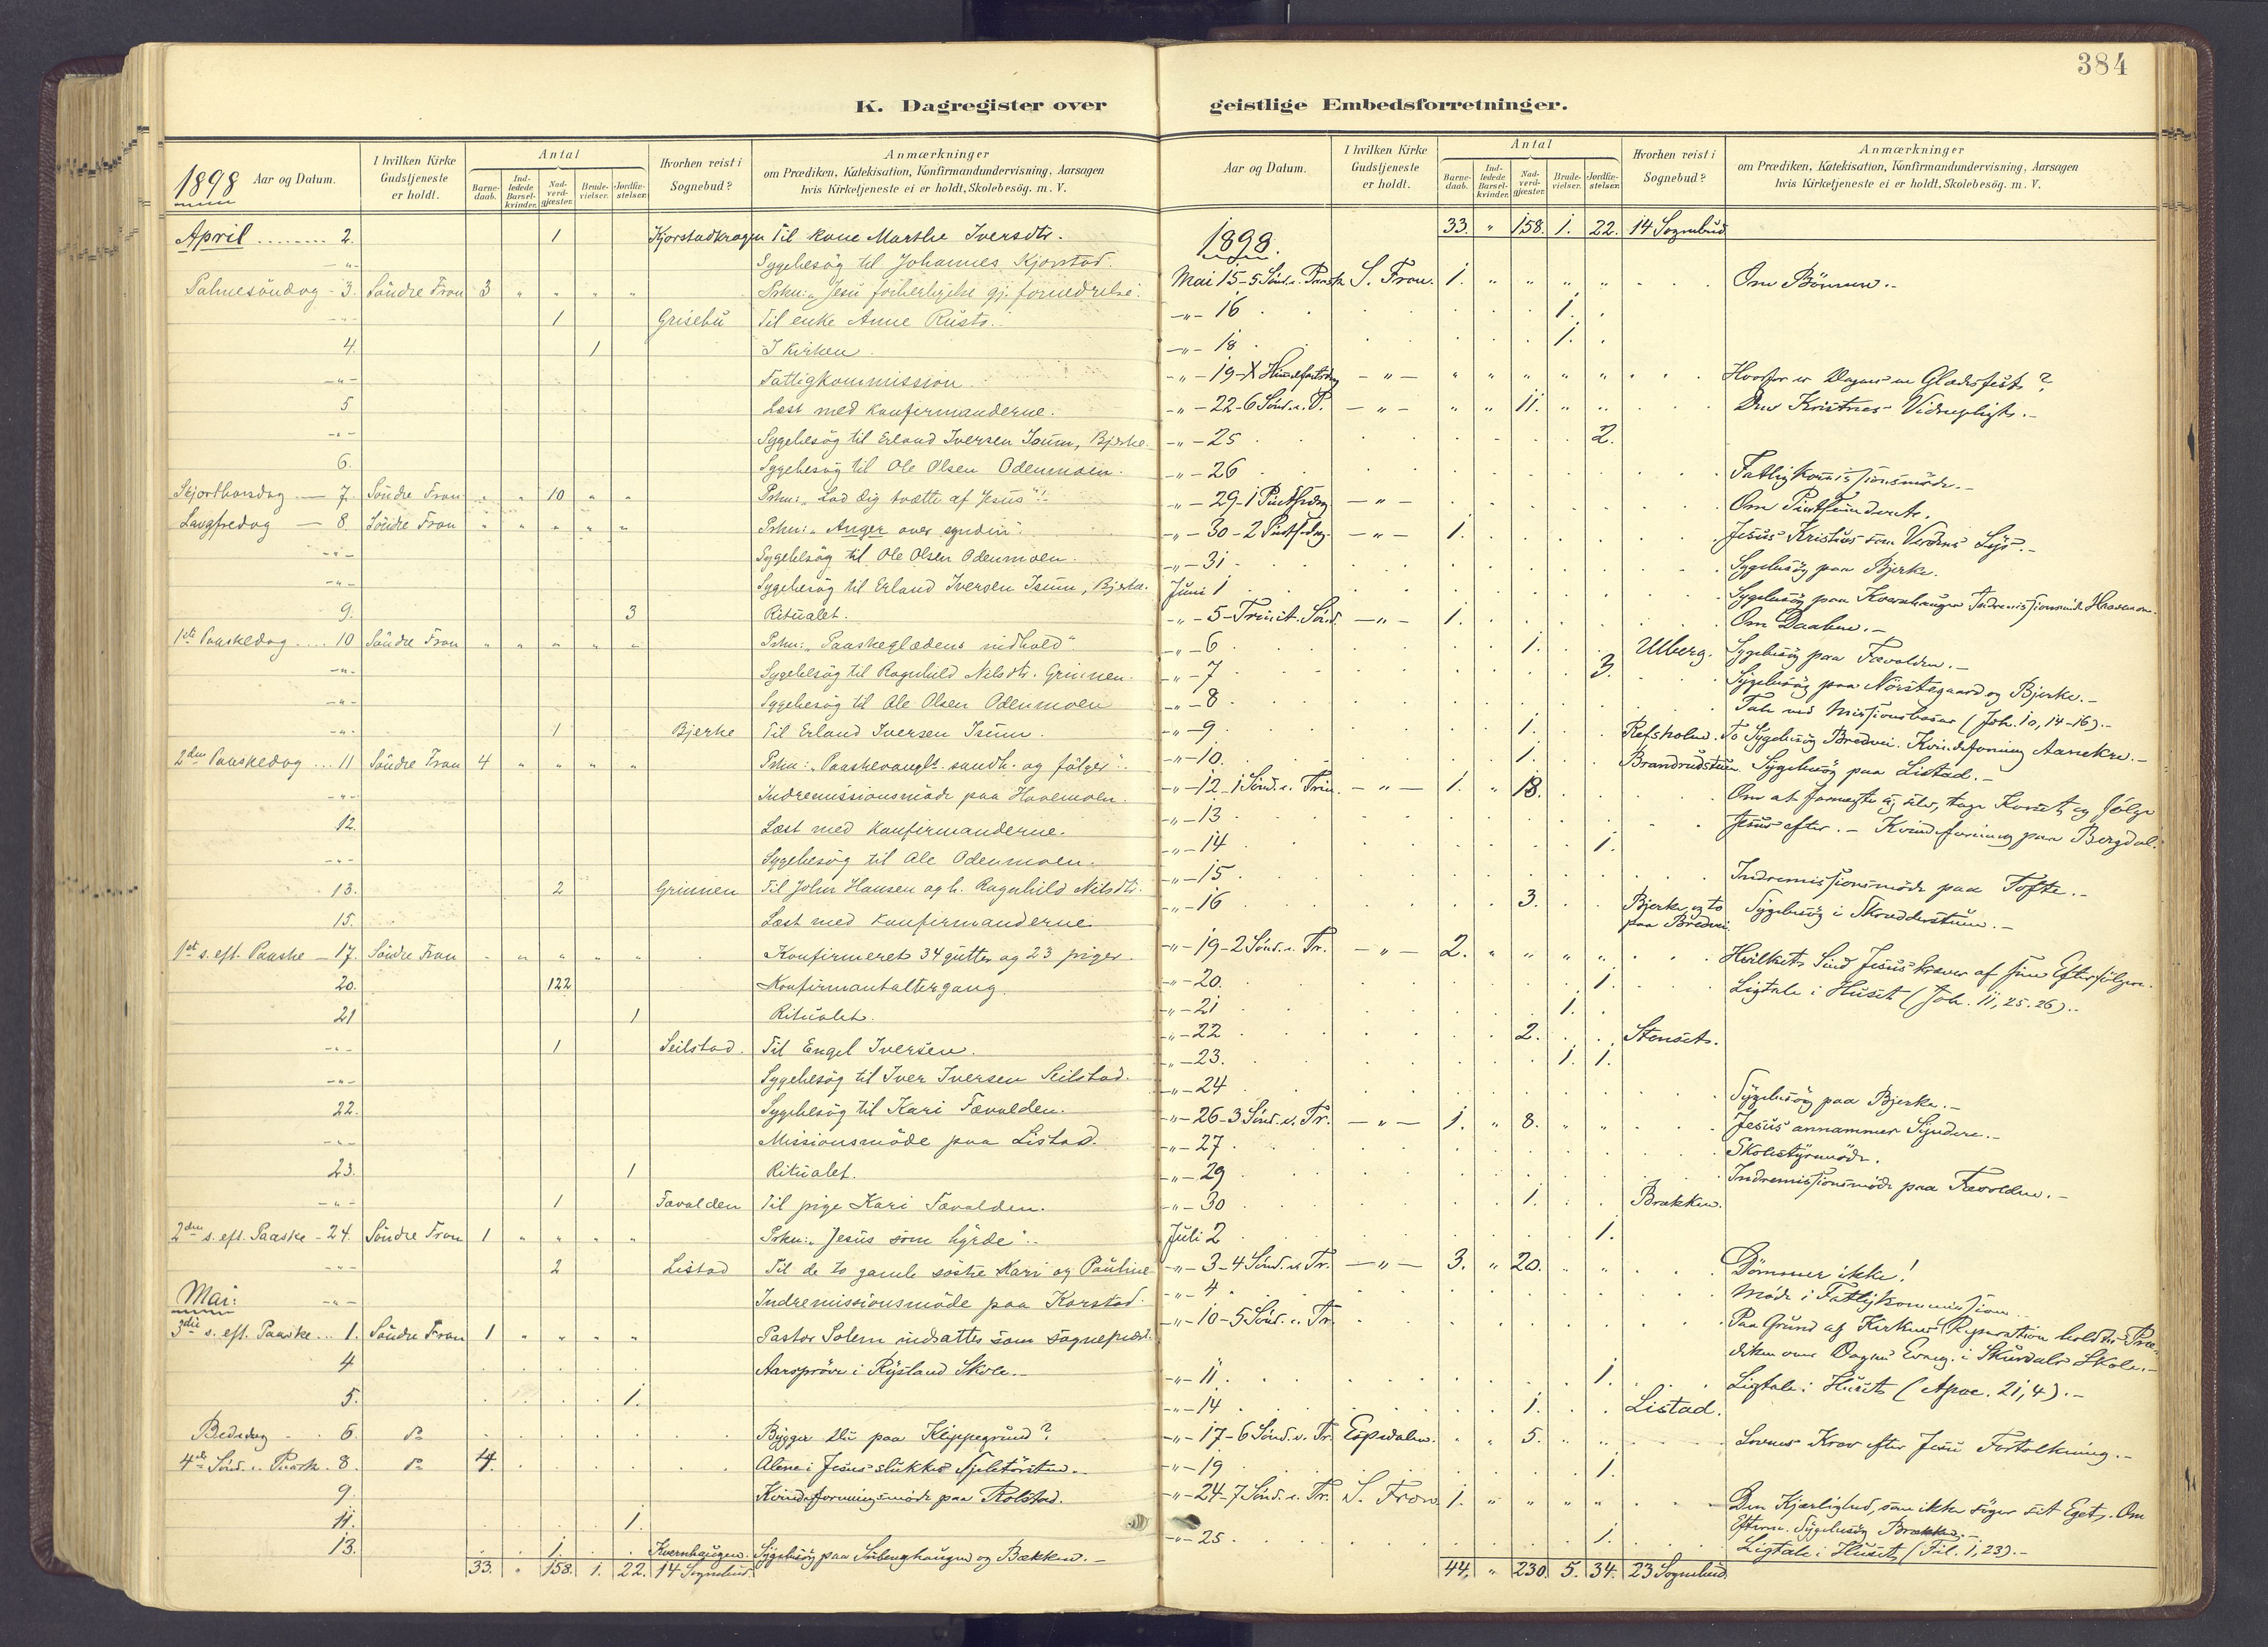 384
K. Dagregister over
1898 Aar og Datum.
I hvilken Kirke Gudstjeneste er holdt.
Antal
Barne-daab.
Ind-ledede Barsel-kvinder.
Nad-verd-gjæster.
Brude-vielser.
Jordfæ-stelser.
Hvorhen reist i Sognebud?
Anmærkninger
om Prædiken, Katekisation, Konfirmandundervisning, Aarsagen
hvis Kirketjeneste ei er holdt, Skolebesög. m. V.
April ........ 2. 1 Kjorstadkragen Til kone Marthe Iversdtr.
-"- Sygebesög til Johannes Kjorstad.
Palmesöndag - 3. Söndre Fron 3 " " " " Prkn: "Jesu forherligelse gj. fornedrelse".
-"- 1 Grisebu Til enke Anne Rusto.
4. 1 I kirken.
-"- Fattigkommission.
5 Læst med konfirmanderne.
-"- Sygebesög til Erland Iversen Isum, Bjerke.
6. Sygebesög til Ole Olsen Odenmoen.
Skjærthorsdag - 7. Söndre Fron " " 10 " " Prkn: "Lad dig tvætte af Jesus"!
Langfredag - 8. Söndre Fron " " " " " Prkn: "Anger over synden".
-"- Sygebesög til Ole Olsen Odenmoen.
-"- Sygebesög til Erland Iversen Isum, Bjerke.
9. 3 Ritualet.
1ste Paaskedag .... 10 Söndre Fron " " " " " Prkn: "Paaskeglædens indhold".
-"- Sygebesög til Ragnhild Nilsdtr. Grinnen.
-"- Sygebesög til Ole Olsen Odenmoen
-"- 1 Bjerke Til Erland Iversen Isum.
2den Paaskedag ... 11 Söndre Fron 4 " " " " Prkn: "Paaskevanglt. sandh. og fölger".
-"- Indremissionsmöde paa Haavemoen.
12. Læst med konfirmanderne.
-"- Sygebesög til Ole Odenmoen.
13. 2 Grinnen Til John Hansen og h. Ragnhild Nilsdtr.
15. Læst med konfirmanderne
1st s. eft. Paaske - 17. Söndre Fron " " " " " Konfirmeret 34 gutter og 23 piger.
20. 122 Konfirmantaltergang.
21 1 Ritualet.
-"- 1 Seilstad. Til Engel Iversen.
-"- Sygebesög til Iver Iversen Seilstad.
22. Sygebesög til Kari Fævolden.
-"- Missionsmöde paa Listad.
23. 1 Ritualet.
-"- 1 Fævolden Til pige Kari Fævolden.
2den s. eft. Paaske - 24. Söndre Fron 1 " " " " Prkn: "Jesus som hyrde".
-"- 2 Listad Til de to gamle söstre Kari og Pauline
-"- Indremissionsmöde paa Korstad.
Mai:
3die s. eft. Paaske ... 1. Söndre Fron 1 " " " " Pastor Solem indsattes som sogneprest.
4 Aarspröve i Rysland Skole.-
5. 1.
Bededag - . 6. do Bygger du paa Klippegrund?
4de Sönd. e. Paask. 8. do 4. Alene i Jesus slukkes Sjeletörsten.-
9. Kvindeforeningsmöde paa Rolstad.
11. 1.
13. 1. Kvernhaugen. Sygebesög paa og Bækken.-
33. " 158. 1. 22. 14 Sognebud.
geistlige Embedsforretninger.
Aar og Datum.
I hvilken Kirke Gudstjeneste er holdt.
Antal
Barne-daab.
Ind-ledede Barsel-kvinder.
Nad-verd-gjæster.
Brude-vielser.
Jordfæ-stelser.
Hvorhen reist i Sognebud?
Anmærkninger
om Prædiken, Katekisation, Konfirmandundervisning, Aarsagen
hvis Kirketjeneste ei er holdt, Skolebesög. m. V.
33. " 158. 1. 22. 14 Sognebud
1898.
Mai 15-5 Sönd. e. Paask. S. Fron. 1. " " " " Om Bönnen.-
-"- 16 1.
-"- 18 1.
-"- 19- Himmelfartsdag -"- " " " " " Hvorfor er Dagen en Glædesfest?
-"- 22-6 Sönd. e. P. -"- " " 11. " " Den Kristnes Vidnepligt.-
-"- 25 2.
-"- 26 Fattigkommissionsmöde.-
-"- 29-1 Pintsedag -"- Om Pintseunderet.
-"- 30-2 Pintsedag. -"- 1. Jesus Kristus som Verdens Lys.-
-"- 31 Sygebesög paa Bjerke.
Juni 1 Sygebesög paa Kvernhaugen Indremissionsmöde Haavemoen.
-"- 5-Trinit. Sönd. -"- 1. Om Daaben.-
-"- 6 1. Ulberg. Sygebesög paa Fævolden.-
-"- 7 3. Sygebesög paa Nörstegaard og Bjerke.-
-"- 8 Tale ved Missionsbasar (Joh. 10, 14-16).-
-"- 9 1. Refsholen. To Sygebesög Bredvei. Kvindeforening Aanekre.-
-"- 10. 1. Brandrudstuen Sygebesög paa Listad.-
-"- 12-1 Sönd. e. Trin. -"- 1. " 18. Om at fornegte sig selv, tage Korset og fölge
-"- 13 Jesus efter.- Kvindeforening paa Bergdal.
-"- 14 1.
-"- 15 Indremissionsmöde paa Tofte.-
-"- 16 3. Bjerke og to paa Bredvei. Sygebesög i Skredderstuen.-
-"- 19-2 Sönd. e. Tr. -"- 2. " " " " Hvilket Sind Jesus kræver af sine Efterfölgere.
-"- 20. 1. Ligtale i Huset (Joh. 11, 25-26).-
-"- 21 1.
-"- 22 2. Stenset.
-"- 23. 1. 1.
-"- 24 Sygebesög paa Bjerke.-
-"- 26-3 Sönd. e. Tr. -"- 1. " 8. " " Jesus annammer Syndere.-
-"- 27 Skolestyremöde.
-"- 29 Indremissionsmöde paa Fævolden.-
-"- 30 1. Brækken.
Juli 2 1.
-"- 3-4 Sönd. e. Tr. -"- 3. " 20. " " Dömmer ikke!
-"- 4 Möde i Fattigkommission
-"- 10-5 Sönd. e. Tr. Paa Grund af Kirkens Reparation holdtes Præ-
diken over Dagens Evang. i Skurdals Skole.-
-"- 11 1. Ligtale i Huset (Apoc. 21, 4).-
-"- 14 1. Listad.
-"- 17-6 Sönd. e. Tr. Espedalen. " " 5. " " Lovens Krav efter Jesu Fortolkning.-
-"- 19 1.
-"- 24-7 Sönd. e. Tr. S. Fron. 1. " " " " Den Kjærlighed, som ikke söger sit Eget. Om
Efterm. Sygebesög Brække.-
-"- 25. 1. Ligtale i Huset (Fil. 1, 23).-
44. " 230. 5. 34. 23 Sognebud